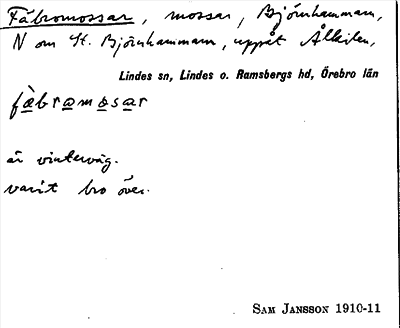 Fäbromossar, mossar, Björnhammar,
N om St. Björnhammar, uppåt Ålkilen,
Lindes sn, Lindes o. Ramsbergs hd, Örebro län
fä̀bramo̱sar
är vinterväg.
varit bro över.
SAM JANSSON 1910-11